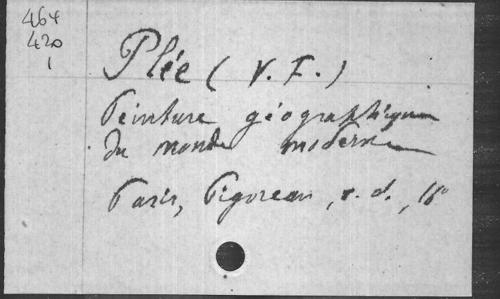 464
420
1
Plée (V. F.)
Peinture géographique
du monde moderne
Paris, Pigoreau, s. d., 16°